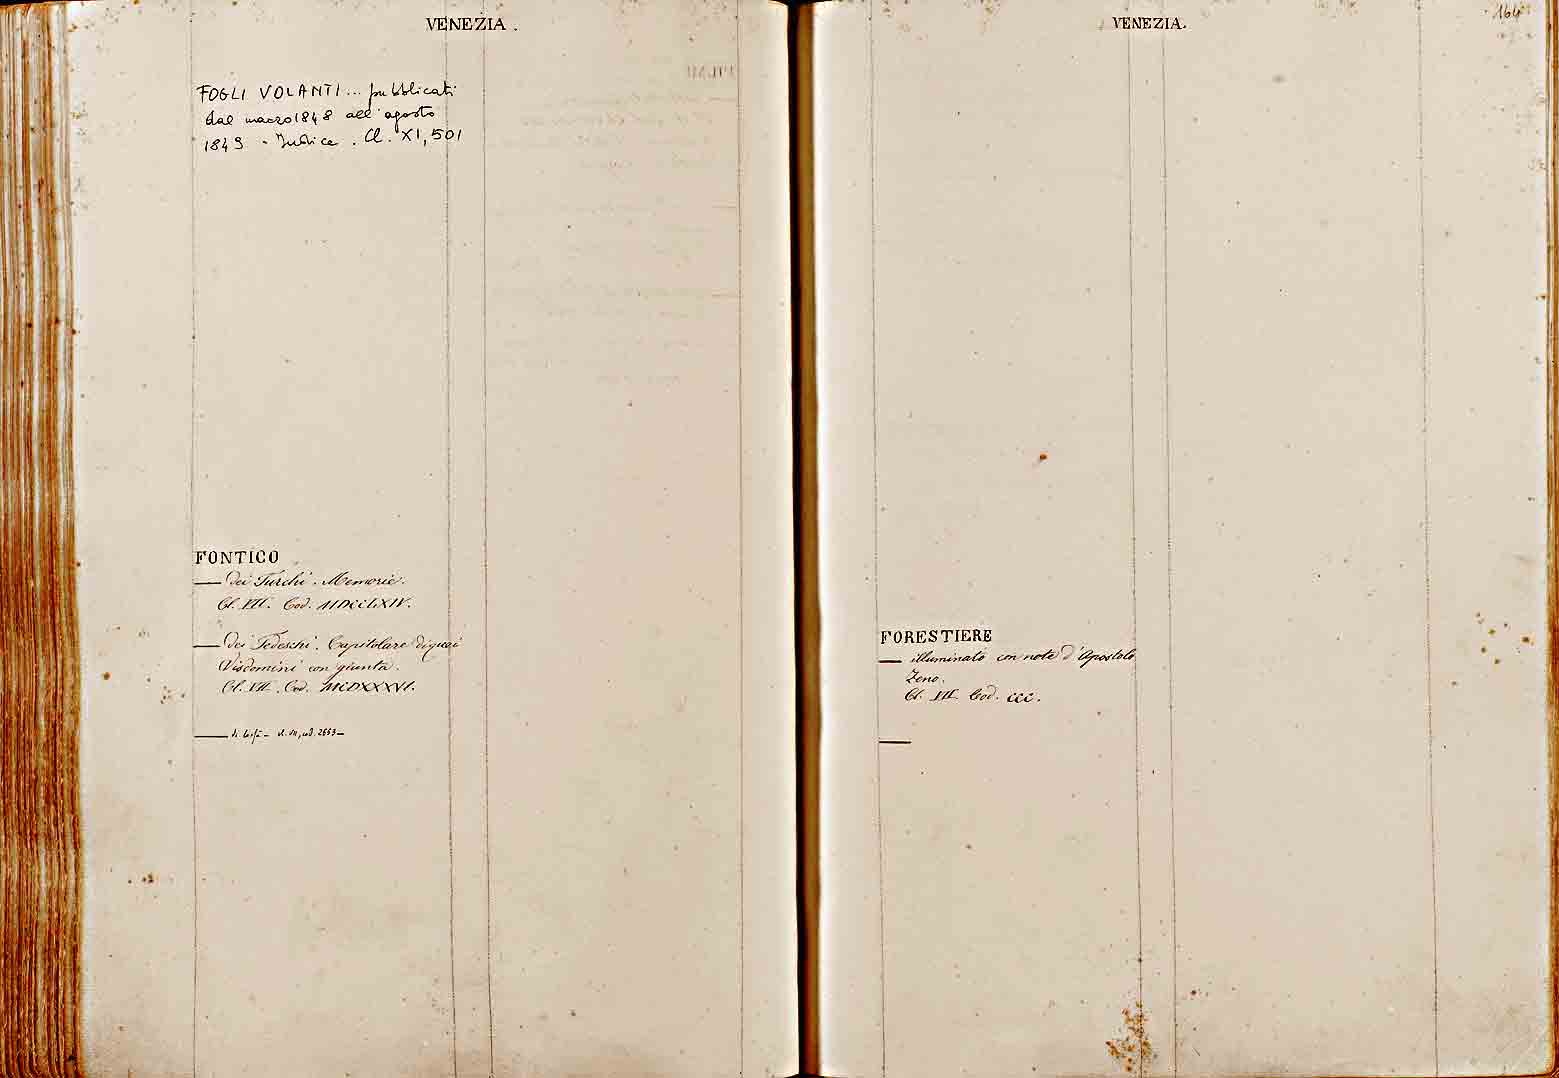 VENEZIA.
FOGLI VOLANTI... pubblicati
dal marzo 1848 all'agosto
1849 - Indice. Cl. XI, 501
FONTICO
— dei Turchi. Memorie.
Cl. VII. Cod. MDCCLXIV.
— dei Tedeschi. Capitolare di quei
Visdomini con giunta.
Cl. VII. Cod. MCDXXXVI.
— cod. 2653 —
VENEZIA.
164
FORESTIERE
— illuminato con note d'Apostolo
Zeno.
Cl. VII. Cod. CCC.
—